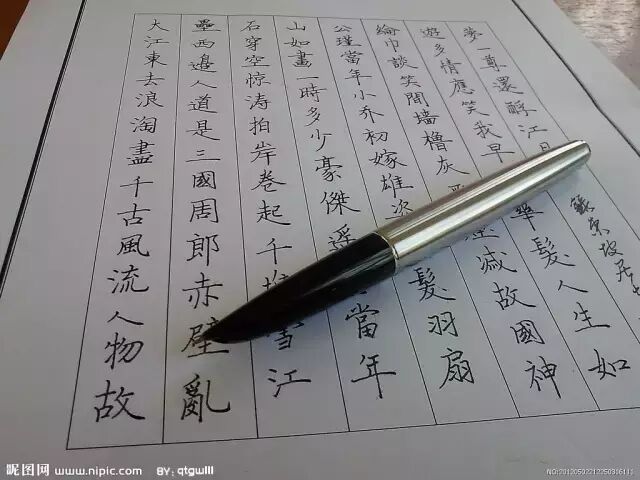 大江東去浪淘盡千古風流人物故
壘西邊人道是三國周郎赤壁亂
石穿空惊涛拍岸卷起千堆雪江
山如畫一時多少豪傑遥當年
公瑾當年小乔初嫁雄姿髮羽扇
綸巾談笑間墙櫓灰滅故國神
遊多情應笑我早華髮人生如
夢一尊還酹江
蘇東坡居
昵图网 www.nipic.com BY: qtgwlll
NO:20120502212250316111